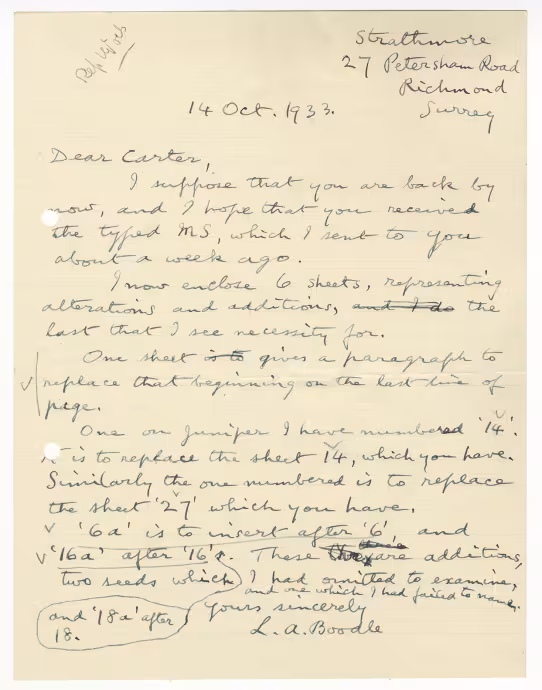 Strathmore
27 Petersham Road
Richmond
Surrey
14 Oct. 1933.
Dear Carter,
I suppose that you are back by
now, and I hope that you received
the typed MS, which I sent to you
about a week ago.
I now enclose 6 sheets, representing
alterations and additions, and I do the
last that I see necessity for.
One sheet is to gives a paragraph to
replace that beginning on the last line of
page.
One on Juniper I have numbered '14'.
is to replace the sheet 14, which you have.
Similarly the one numbered is to replace
the sheet '27' which you have.
'6a' is to insert after '6', and
'16a' after '16'. These are additions,
two seeds which I had omitted to examine,
and one which I had failed to name.
and '18a' after
18.
Yours sincerely
L. A. Boodle